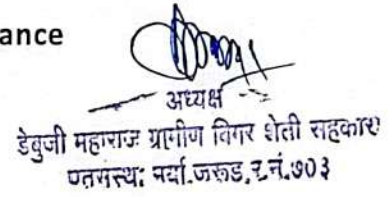 ance
अध्यक्ष
डेबुजी महाराज ग्रामीण विगर शेती सहकारी
पतसंस्था मर्या.जरूड,र.नं.७०३